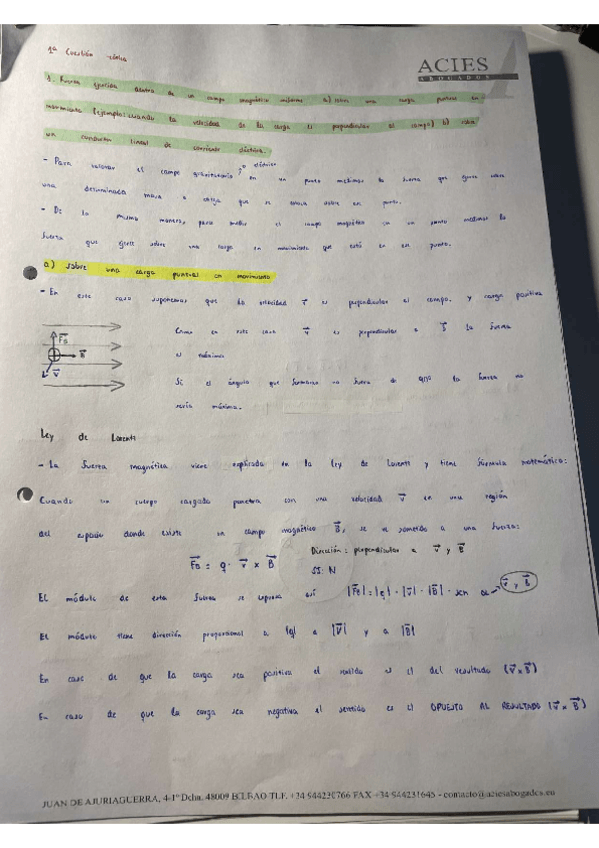 1ª Cuestión teórica
ACIES
ABOGADOS
1. Fuerza ejercida dentro de un campo magnético uniforme a) sobre una carga puntual en
movimiento (ejemplo: cuando la velocidad de la carga es perpendicular al campo) b) sobre
un conductor lineal de corriente eléctrica.
- Para valorar el campo gravitatorio / o eléctrico en un punto medimos la fuerza que ejerce sobre
una determinada masa o carga que se coloca sobre un punto.
- De la misma manera, para medir el campo magnético en un punto medimos la
fuerza que ejerce sobre una carga en movimiento que está en ese punto.
a) sobre una carga puntual en movimiento
- En este caso suponemos que la velocidad v⃗ es perpendicular al campo. y carga positiva
F⃗B
B⃗
v⃗
Como en este caso v⃗ es perpendicular a B⃗ la fuerza
es máxima
Si el ángulo que formasen no fuera de 90º la fuerza no
sería máxima.
Ley de Lorentz
- La fuerza magnética viene explicada en la ley de Lorentz y tiene fórmula matemática:
Cuando un cuerpo cargado penetra con una velocidad v⃗ en una región
del espacio donde existe un campo magnético B⃗, se ve sometido a una fuerza:
F⃗B = q · v⃗ × B⃗ Dirección: perpendicular a v⃗ y B⃗
SI: N
El módulo de esta fuerza se expresa así |F⃗B| = |q| · |v⃗| · |B⃗| · sen α v⃗ y B⃗
El módulo tiene dirección proporcional a |q| a |v⃗| y a |B⃗|
En caso de que la carga sea positiva el sentido es el del resultado (v⃗ × B⃗)
En caso de que la carga sea negativa el sentido es el OPUESTO AL RESULTADO (v⃗ × B⃗)
JUAN DE AJURIAGUERRA, 4-1º Dcha. 48009 BILBAO TLF. +34 944230766 FAX +34 944231645 - contacto@aciesabogados.eu